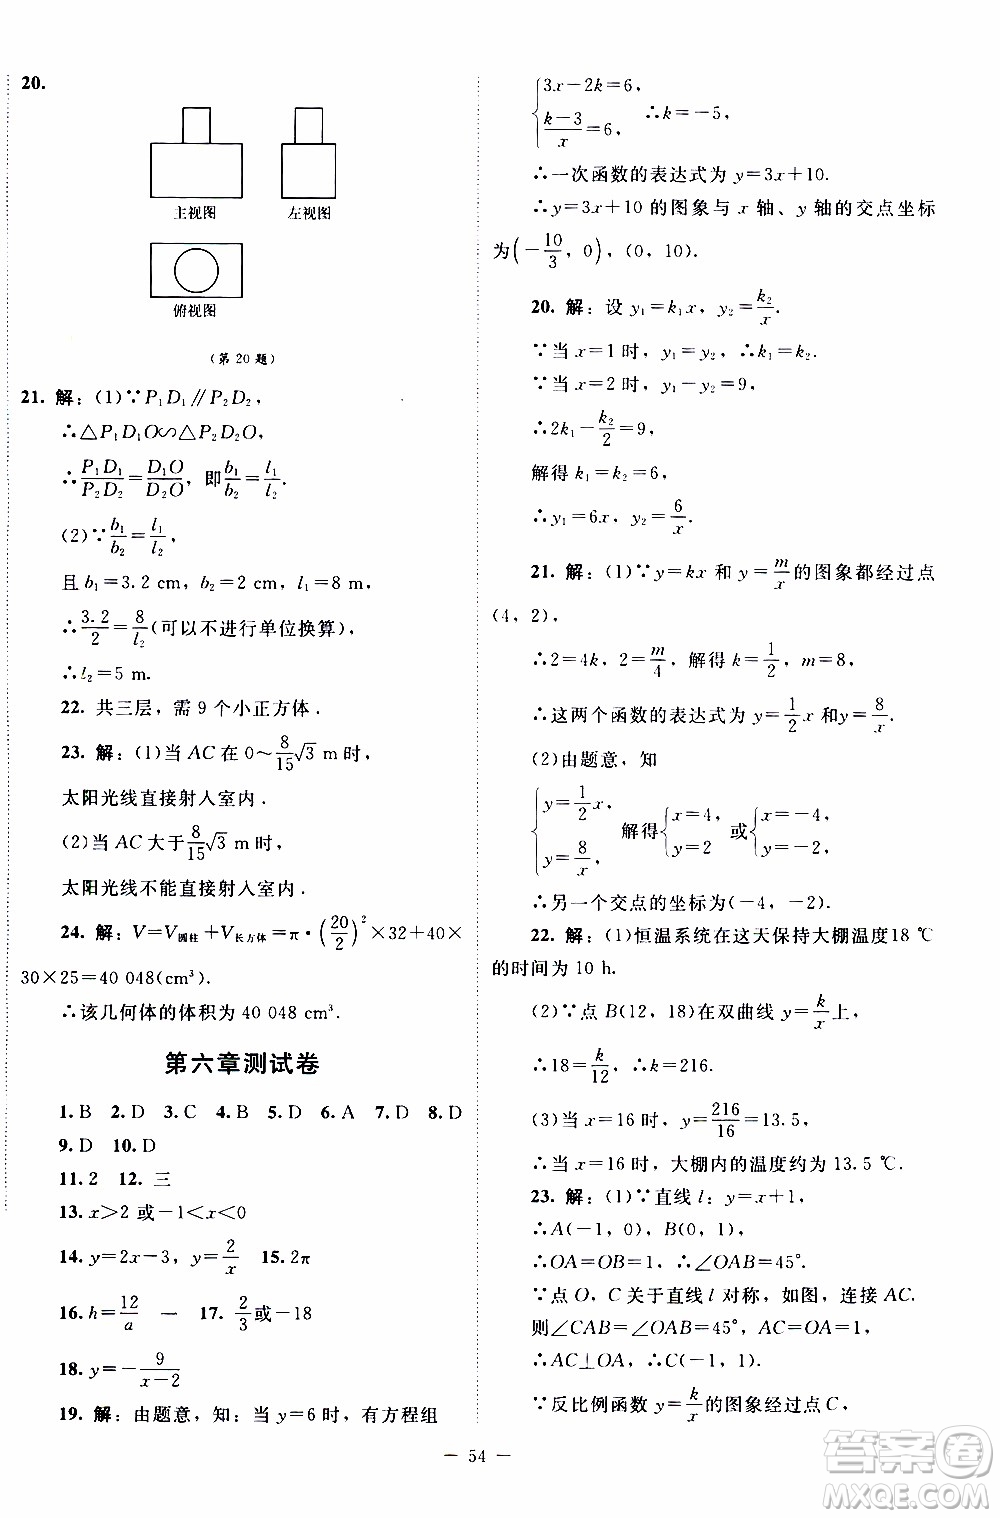 20.
主视图 左视图
俯视图
(第 20 题)
21. 解：(1)∵P₁D₁∥P₂D₂，
∴△P₁D₁O∽△P₂D₂O，
∴P₁D₁/P₂D₂=D₁O/D₂O，即b₁/b₂=l₁/l₂.
(2)∵b₁/b₂=l₁/l₂，
且 b₁=3.2 cm，b₂=2 cm，l₁=8 m，
∴3.2/2=8/l₂(可以不进行单位换算)，
∴l₂=5 m.
22. 共三层，需 9 个小正方体．
23. 解：(1)当 AC 在 0～8/15√3 m 时，
太阳光线直接射入室内．
(2)当 AC 大于8/15√3 m 时，
太阳光线不能直接射入室内．
24. 解：V=V圆柱+V长方体=π·(20/2)²×32+40×
30×25=40 048(cm³).
∴该几何体的体积为 40 048 cm³.
第六章测试卷
1. B 2. D 3. C 4. B 5. D 6. A 7. D 8. D
9. D 10. D
11. 2 12. 三
13. x>2 或−1<x<0
14. y=2x−3，y=2/x 15. 2π
16. h=12/a 一 17. 2/3或−18
18. y=−9/(x−2)
19. 解：由题意，知：当 y=6 时，有方程组
{3x−2k=6，
(k−3)/x=6， ∴k=−5，
∴一次函数的表达式为 y=3x+10.
∴y=3x+10 的图象与 x 轴、y 轴的交点坐标
为(−10/3，0)，(0，10).
20. 解：设 y₁=k₁x，y₂=k₂/x.
∵当 x=1 时，y₁=y₂，∴k₁=k₂.
∵当 x=2 时，y₁−y₂=9，
∴2k₁−k₂/2=9，
解得 k₁=k₂=6，
∴y₁=6x，y₂=6/x.
21. 解：(1)∵y=kx 和 y=m/x的图象都经过点
(4，2)，
∴2=4k，2=m/4，解得 k=1/2，m=8，
∴这两个函数的表达式为 y=1/2x，y=8/x.
(2)由题意，知
{y=1/2x，
y=8/x， 解得{x=4，y=2 或{x=−4，y=−2.
∴另一个交点的坐标为(−4，−2).
22. 解：(1)恒温系统在这天保持大棚温度18 ℃
的时间为 10 h.
(2)∵点 B(12，18)在双曲线 y=k/x上，
∴18=k/12，∴k=216.
(3)当 x=16 时，y=216/16=13.5，
∴当 x=16 时，大棚内的温度约为 13.5 ℃.
23. 解：(1)∵直线 l：y=x+1，
∴A(−1，0)，B(0，1)，
∴OA=OB=1，∴∠OAB=45°.
∵点 O，C 关于直线 l 对称，如图，连接 AC.
则∠CAB=∠OAB=45°，AC=OA=1，
∴AC⊥OA，∴C(−1，1)，
∵反比例函数 y=k/x的图象经过点 C，
— 54 —
答案圈
MXQE.COM